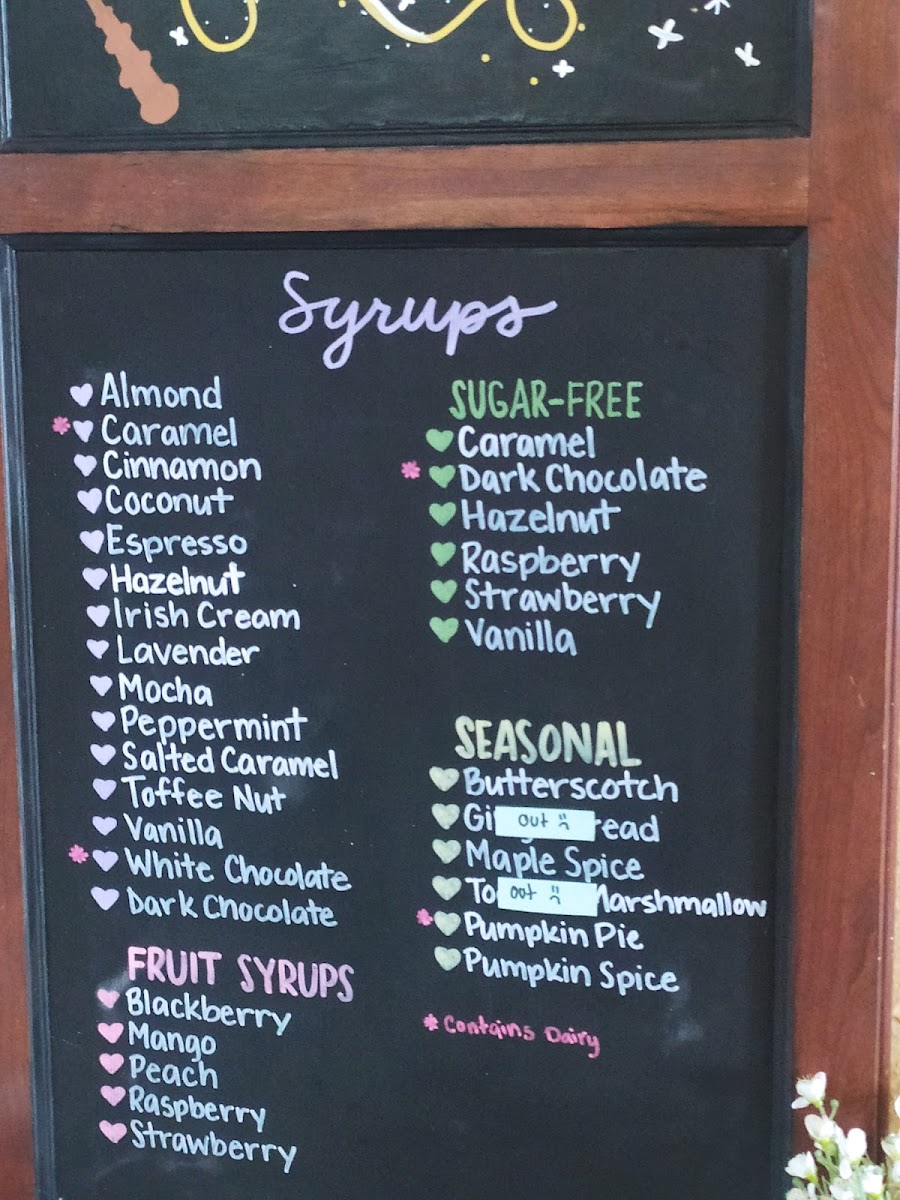 Syrups
Almond
* Caramel
Cinnamon
Coconut
Espresso
Hazelnut
Irish Cream
Lavender
Mocha
Peppermint
Salted Caramel
Toffee Nut
Vanilla
* White Chocolate
Dark Chocolate
FRUIT SYRUPS
Blackberry
Mango
Peach
Raspberry
Strawberry
SUGAR-FREE
Caramel
* Dark Chocolate
Hazelnut
Raspberry
Strawberry
Vanilla
SEASONAL
Butterscotch
Gi out read
Maple Spice
To out Marshmallow
* Pumpkin Pie
Pumpkin Spice
* Contains Dairy